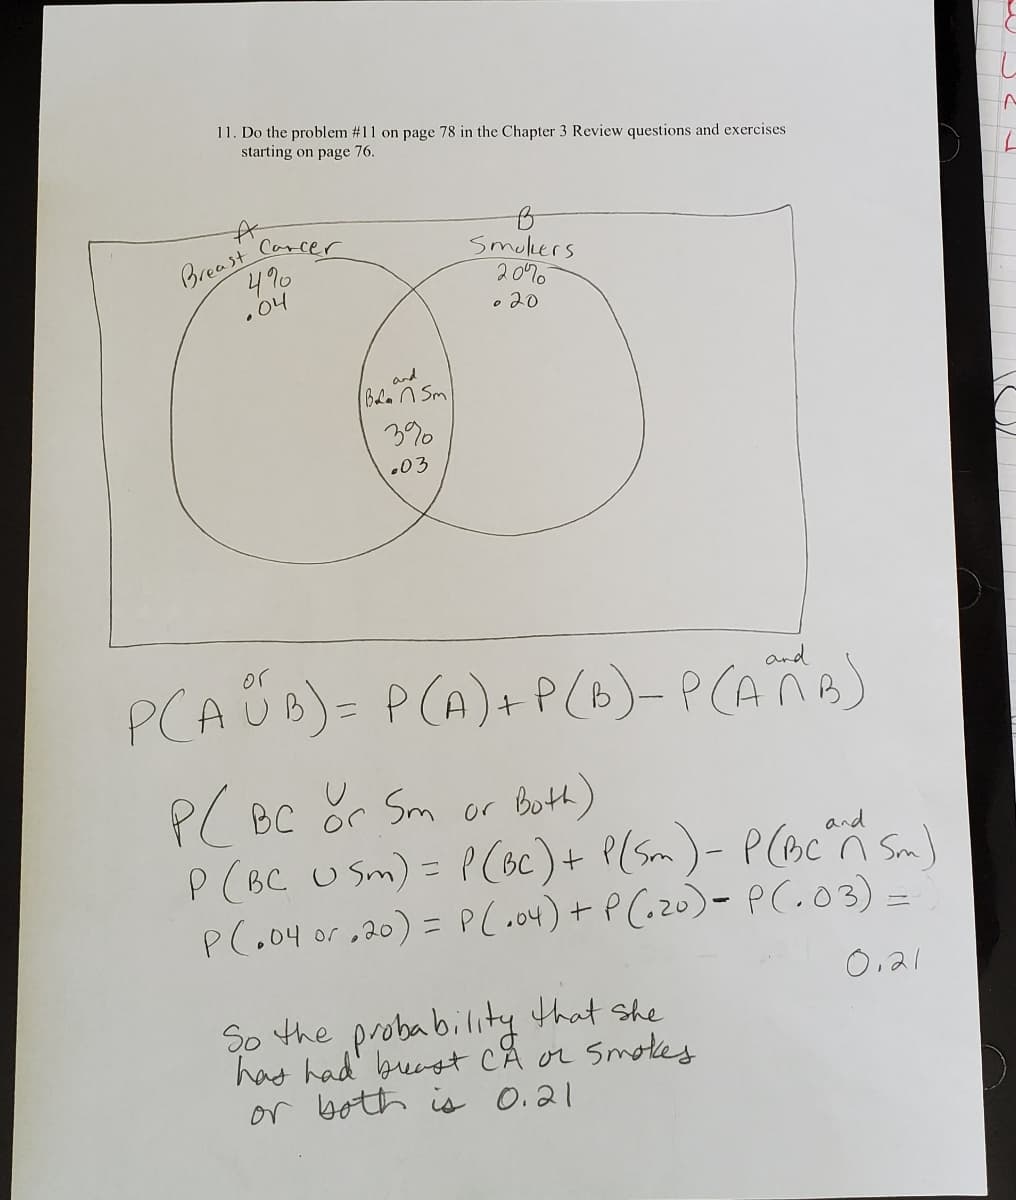 11. Do the problem #11 on page 78 in the Chapter 3 Review questions and exercises
starting on page 76.
A
Breast Cancer
4%
.04
B
Smokers
20%
.20
and
∩ Sm
3%
.03
or and
P(A ∪ B) = P(A) + P(B) - P(A ∩ B)
∪
P( BC or Sm or Both)
and
P (BC ∪ Sm) = P(BC) + P(Sm) - P(BC ∩ Sm)
P(.04 or .20) = P(.04) + P(.20) - P(.03) =
0.21
So the probability that she
has had breast CA or smokes
or both is 0.21